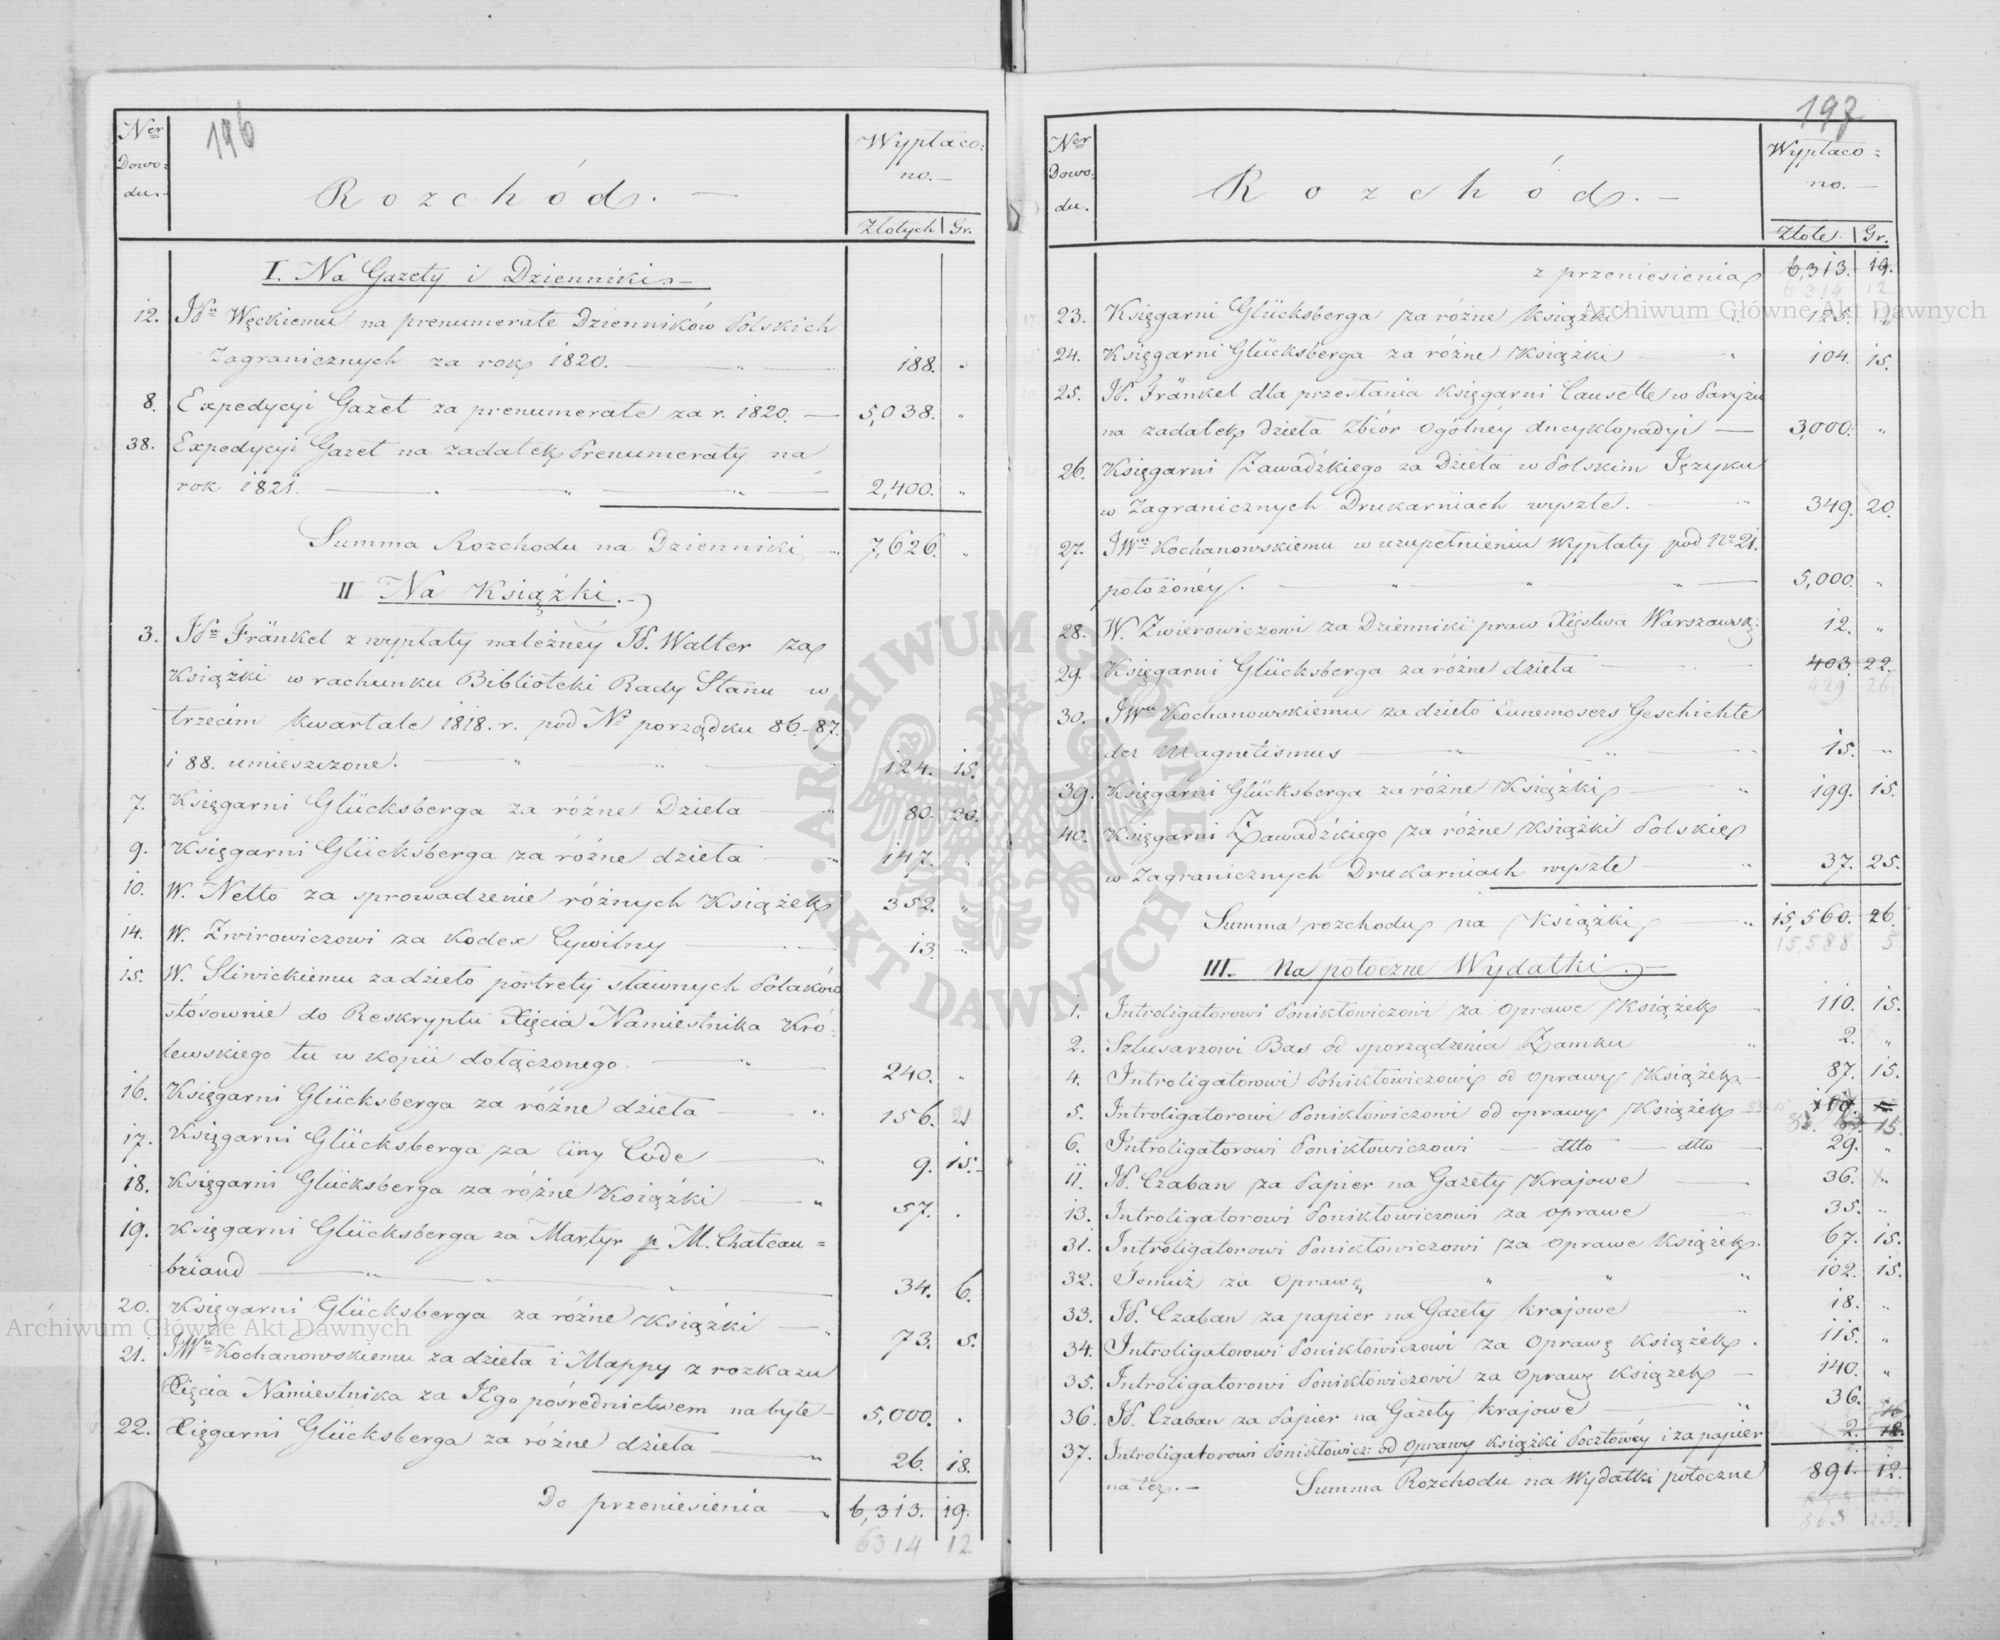 196
Ner
Dowo=
du.
Rozchód.
Wypłaco=
no.
Złotych Gr.
I. Na Gazety i Dzienniki
12. JPu Węckiemu na prenumeratę Dzienników Polskich
Zagranicznych za rok 1820. 188. "
8. Expedycyi Gazet za prenumeratę za r. 1820. 5,038. "
38. Expedycyi Gazet na zadatek Prenumeraty na
rok 1821. 2,400. "
Summa Rozchodu na Dzienniki 7,626. "
II Na Książki.
3. JPu Fränkel z wypłaty należney JP. Walter za
Książki w rachunku Biblioteki Rady Stanu w
trzecim kwartale 1818. r. pod No porządku 86.-87.
i 88. umieszczone. 124. 15.
7. Księgarni Glücksberga za różne Dzieła 80. 20.
9. Księgarni Glücksberga za różne dzieła 147. "
10. W. Netto za sprowadzenie różnych Książek 352. "
14. W. Zwirowiczowi za Kodex Cywilny 13. "
15. W. Sliwickiemu za dzieło portrety sławnych Polaków
stósownie do Reskryptu Xięcia Namiestnika Kró=
lewskiego tu w kopii dołączonego. 240. "
16. Księgarni Glücksberga za różne dzieła 156. 21
17. Księgarni Glücksberga za Cinq Code 9. 15.
18. Księgarni Glücksberga za różne Książki 57. "
19. Księgarni Glücksberga za Martyr p M. Chateau=
briand 34. 6.
20. Księgarni Glücksberga za różne Książki 73. 5.
21. JWu Kochanowskiemu za dzieła i Mappy z rozkazu
Xięcia Namiestnika za JEgo pośrednictwem nabyte 5,000. "
22. Xięgarni Glücksberga za różne dzieła 26. 18.
Do przeniesienia 6,313. 19.
6314 12.
197
Ner
Dowo
du.
Rozchód.
Wypłaco=
no.
Złote. Gr.
z przeniesienia 6,313. 19.
6314 12
23. Księgarni Glücksberga za różne Książki 125.
24. Księgarni Glücksberga za różne Książki 104. 15.
25. JP. Fränkel dla przesłania Księgarni Causette w Paryżu
na zadatek Dzieła Zbiór Ogólney Ancyklopadyi 3,000. "
26. Księgarni Zawadzkiego za Dzieła w Polskim Języku
w Zagranicznych Drukarniach wyszłe. 349. 20.
27. JWu Kochanowskiemu w uzupełnieniu Wypłaty pod No 21.
położóney. 5,000. "
28. W. Zwierowiczowi za Dzienniki praw Xięstwa Warszawsk: 12. "
29. Księgarni Glücksberga za różne dzieła 403 22.
429 26
30. JWu Kochanowskiemu za dzieło Eunemosers Geschichte
der Magnetismus 15. "
39. Księgarni Glücksberga za różne Książki 199. 15.
40. Księgarni Zawadzkiego za różne Książki Polskie
w Zagranicznych Drukarniach wyszłe 37. 25.
Summa rozchodu na Książki 15,560. 26.
15588. 5
III. Na potoczne Wydatki.
1. Introligatorowi Poniktowiczowi za Oprawę Książek 110. 15.
2. Szlusarzowi Bas od sporządzenia Zamku 2. "
4. Introligatorowi Poniktowiczowi od Oprawy Książek 87. 15.
5. Introligatorowi Poniktowiczowi od oprawy Książek
83. 15.
6. Introligatorowi Poniktowiczowi dtto dtto 29. "
11. JP. Czaban za Papier na Gazety Krajowe 36. "
13. Introligatorowi Poniktowiczowi za Oprawę 35. "
31. Introligatorowi Poniktowiczowi za Oprawę Książek. 67. 15.
32. Temuż za Oprawę " " " 102. 15.
33. JP. Czaban za papier na Gazety krajowe 18. "
34. Introligatorowi Poniktowiczowi za Oprawę Książek. 115. "
35. Introligatorowi Poniktowiczowi za Oprawę Książek 140. "
36. JP. Czaban za Papier na Gazety krajowe 36.
37. Introligatorowi Poniktowicz: od Oprawy Książki Pocztówey i za papier 2. 12.
na też. Summa Rozchodu na Wydatki potoczne 891. 12.
863 13.
Archiwum Główne Akt Dawnych
Archiwum Główne Akt Dawnych
· ARCHIWUM GŁÓWNE · AKT DAWNYCH ·